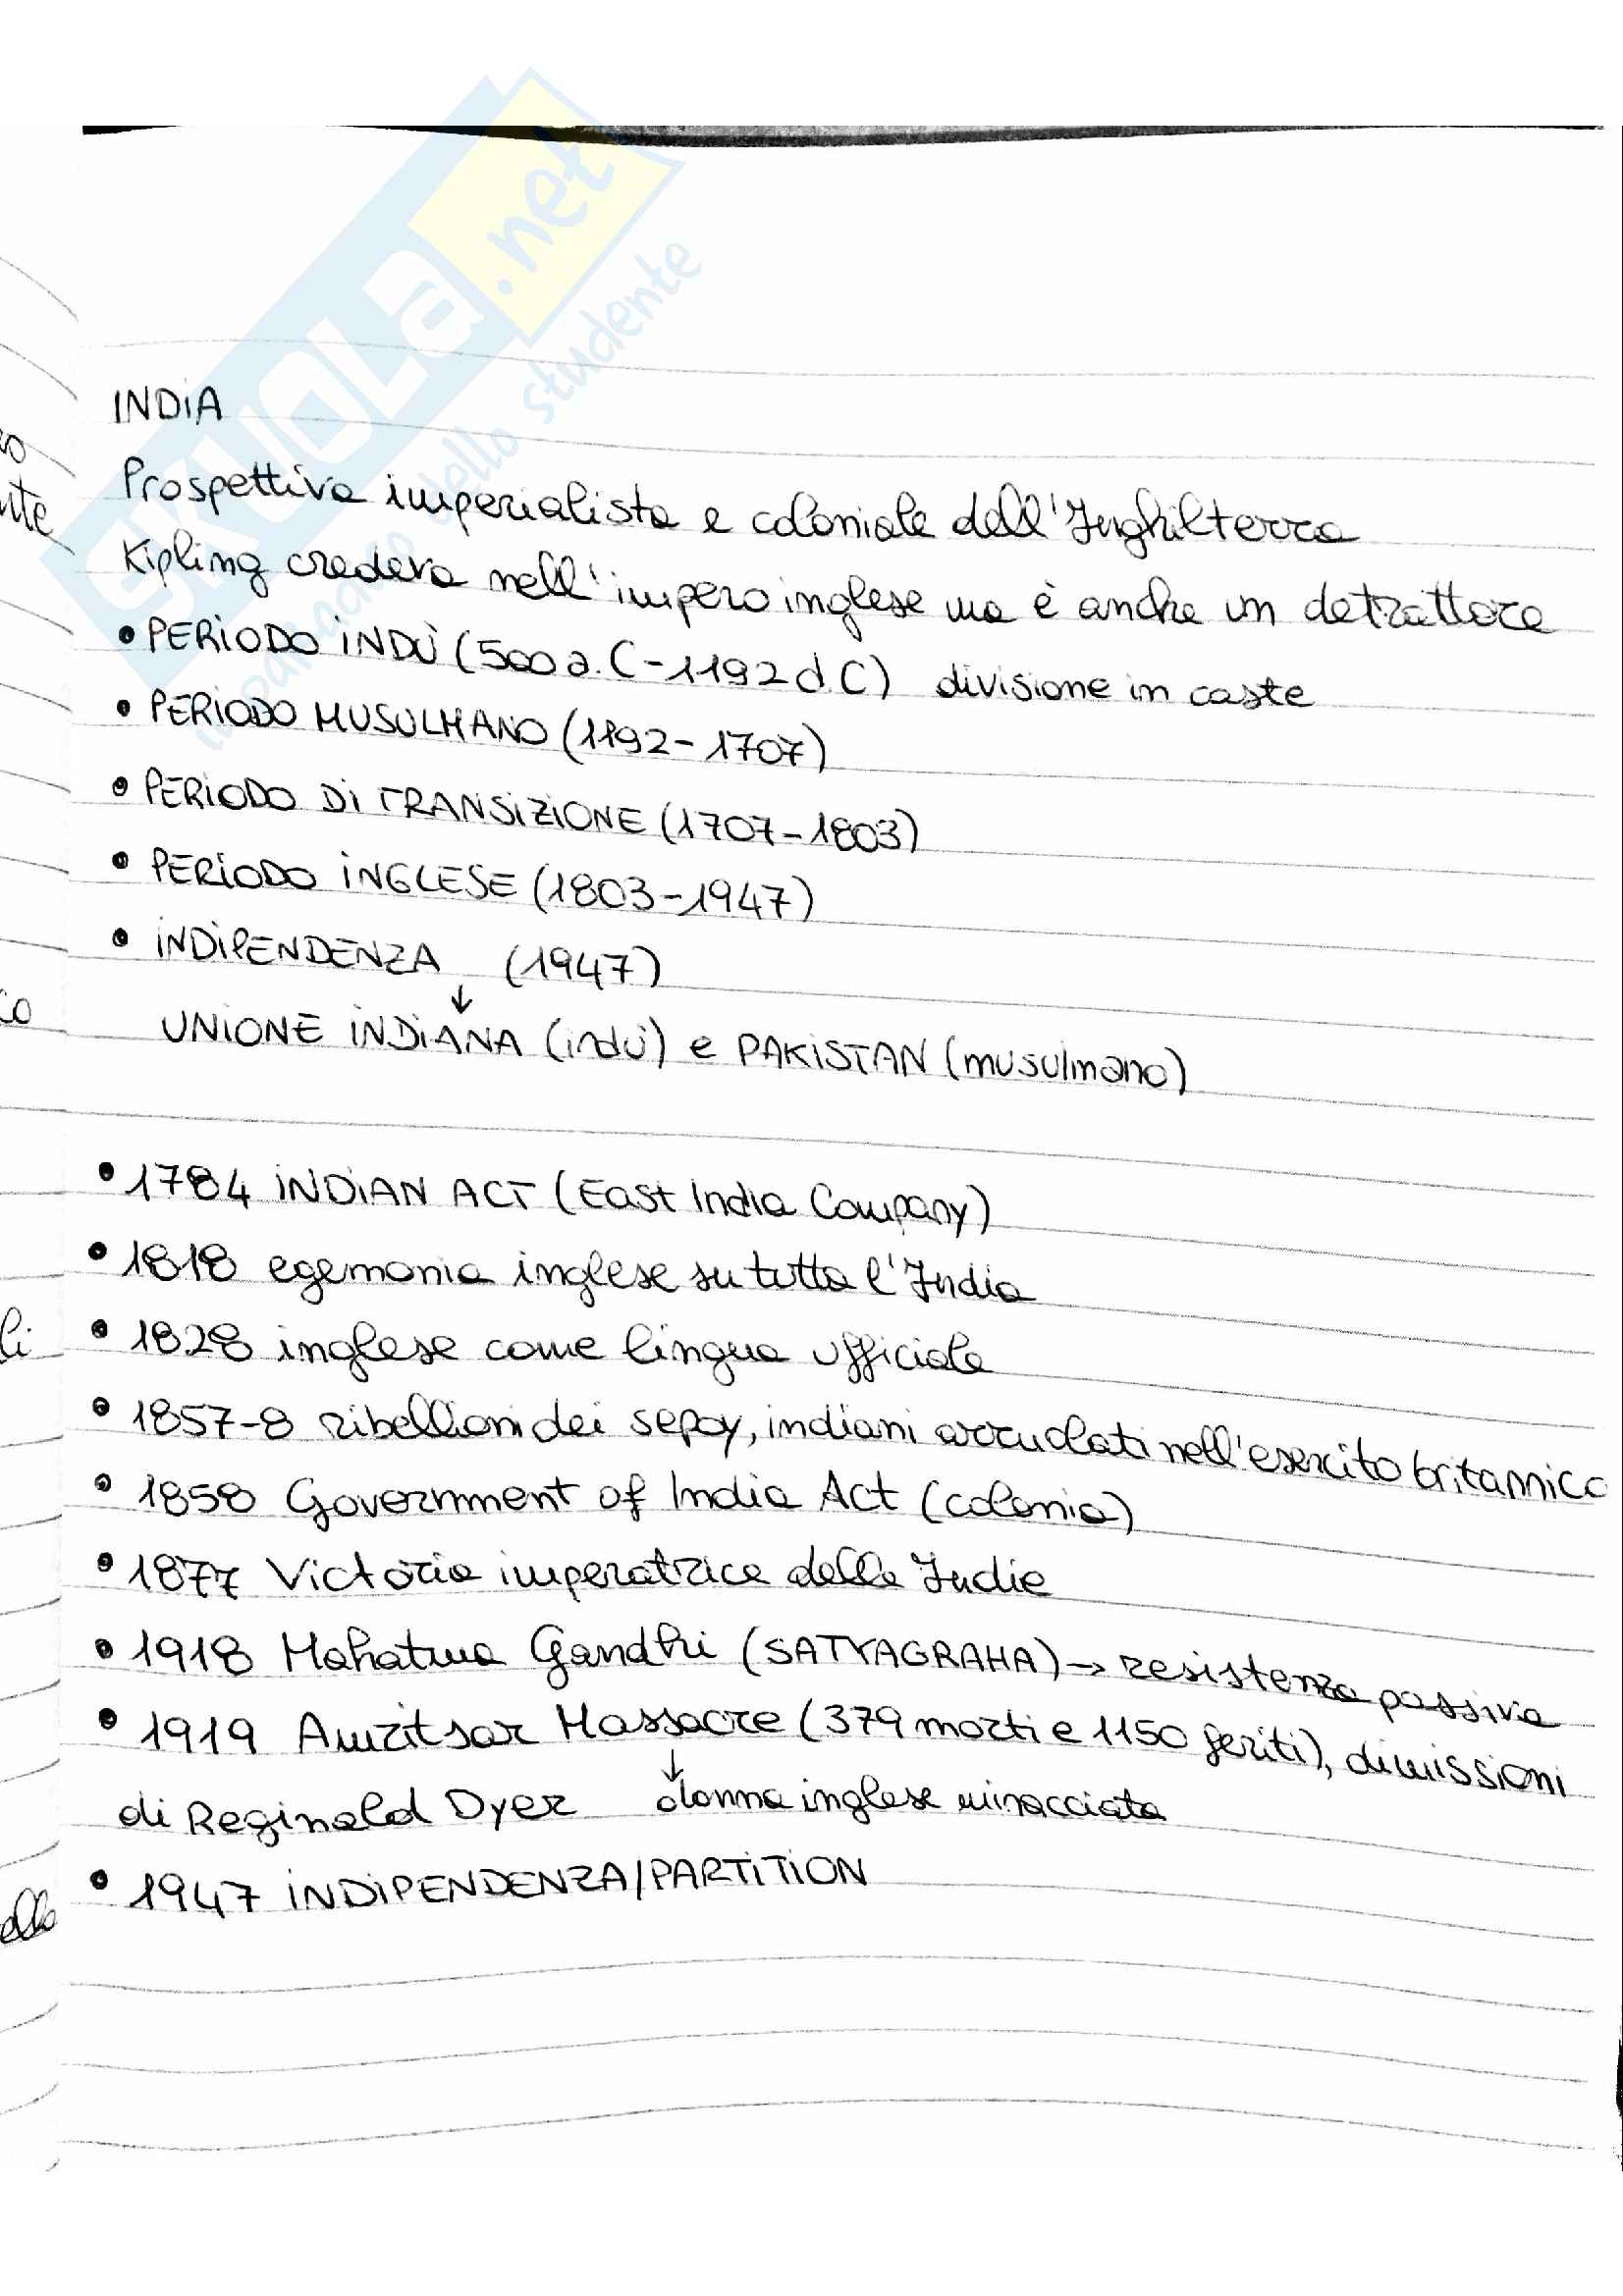 SKUOLA.net
il paradiso dello studente
INDIA
Prospettiva imperialista e coloniale dell'Inghilterra
Kipling credeva nell'impero inglese ma è anche un detrattore
• PERIODO INDÙ (500 a.C-1192 d.C) divisione in caste
• PERIODO MUSULMANO (1192-1707)
• PERIODO DI TRANSIZIONE (1707-1803)
• PERIODO INGLESE (1803-1947)
• INDIPENDENZA (1947)
↓
UNIONE INDIANA (indù) e PAKISTAN (musulmano)
• 1784 INDIAN ACT (East India Company)
• 1818 egemonia inglese su tutta l'India
• 1828 inglese come lingua ufficiale
• 1857-8 ribellioni dei sepoy, indiani arruolati nell'esercito britannico
• 1858 Government of India Act (colonia)
• 1877 Victoria imperatrice delle Indie
• 1918 Mahatma Gandhi (SATYAGRAHA) → resistenza passiva
• 1919 Amritsar Massacre (379 morti e 1150 feriti), dimissioni
di Reginald Dyer ↓ donna inglese minacciata
• 1947 INDIPENDENZA/PARTITION